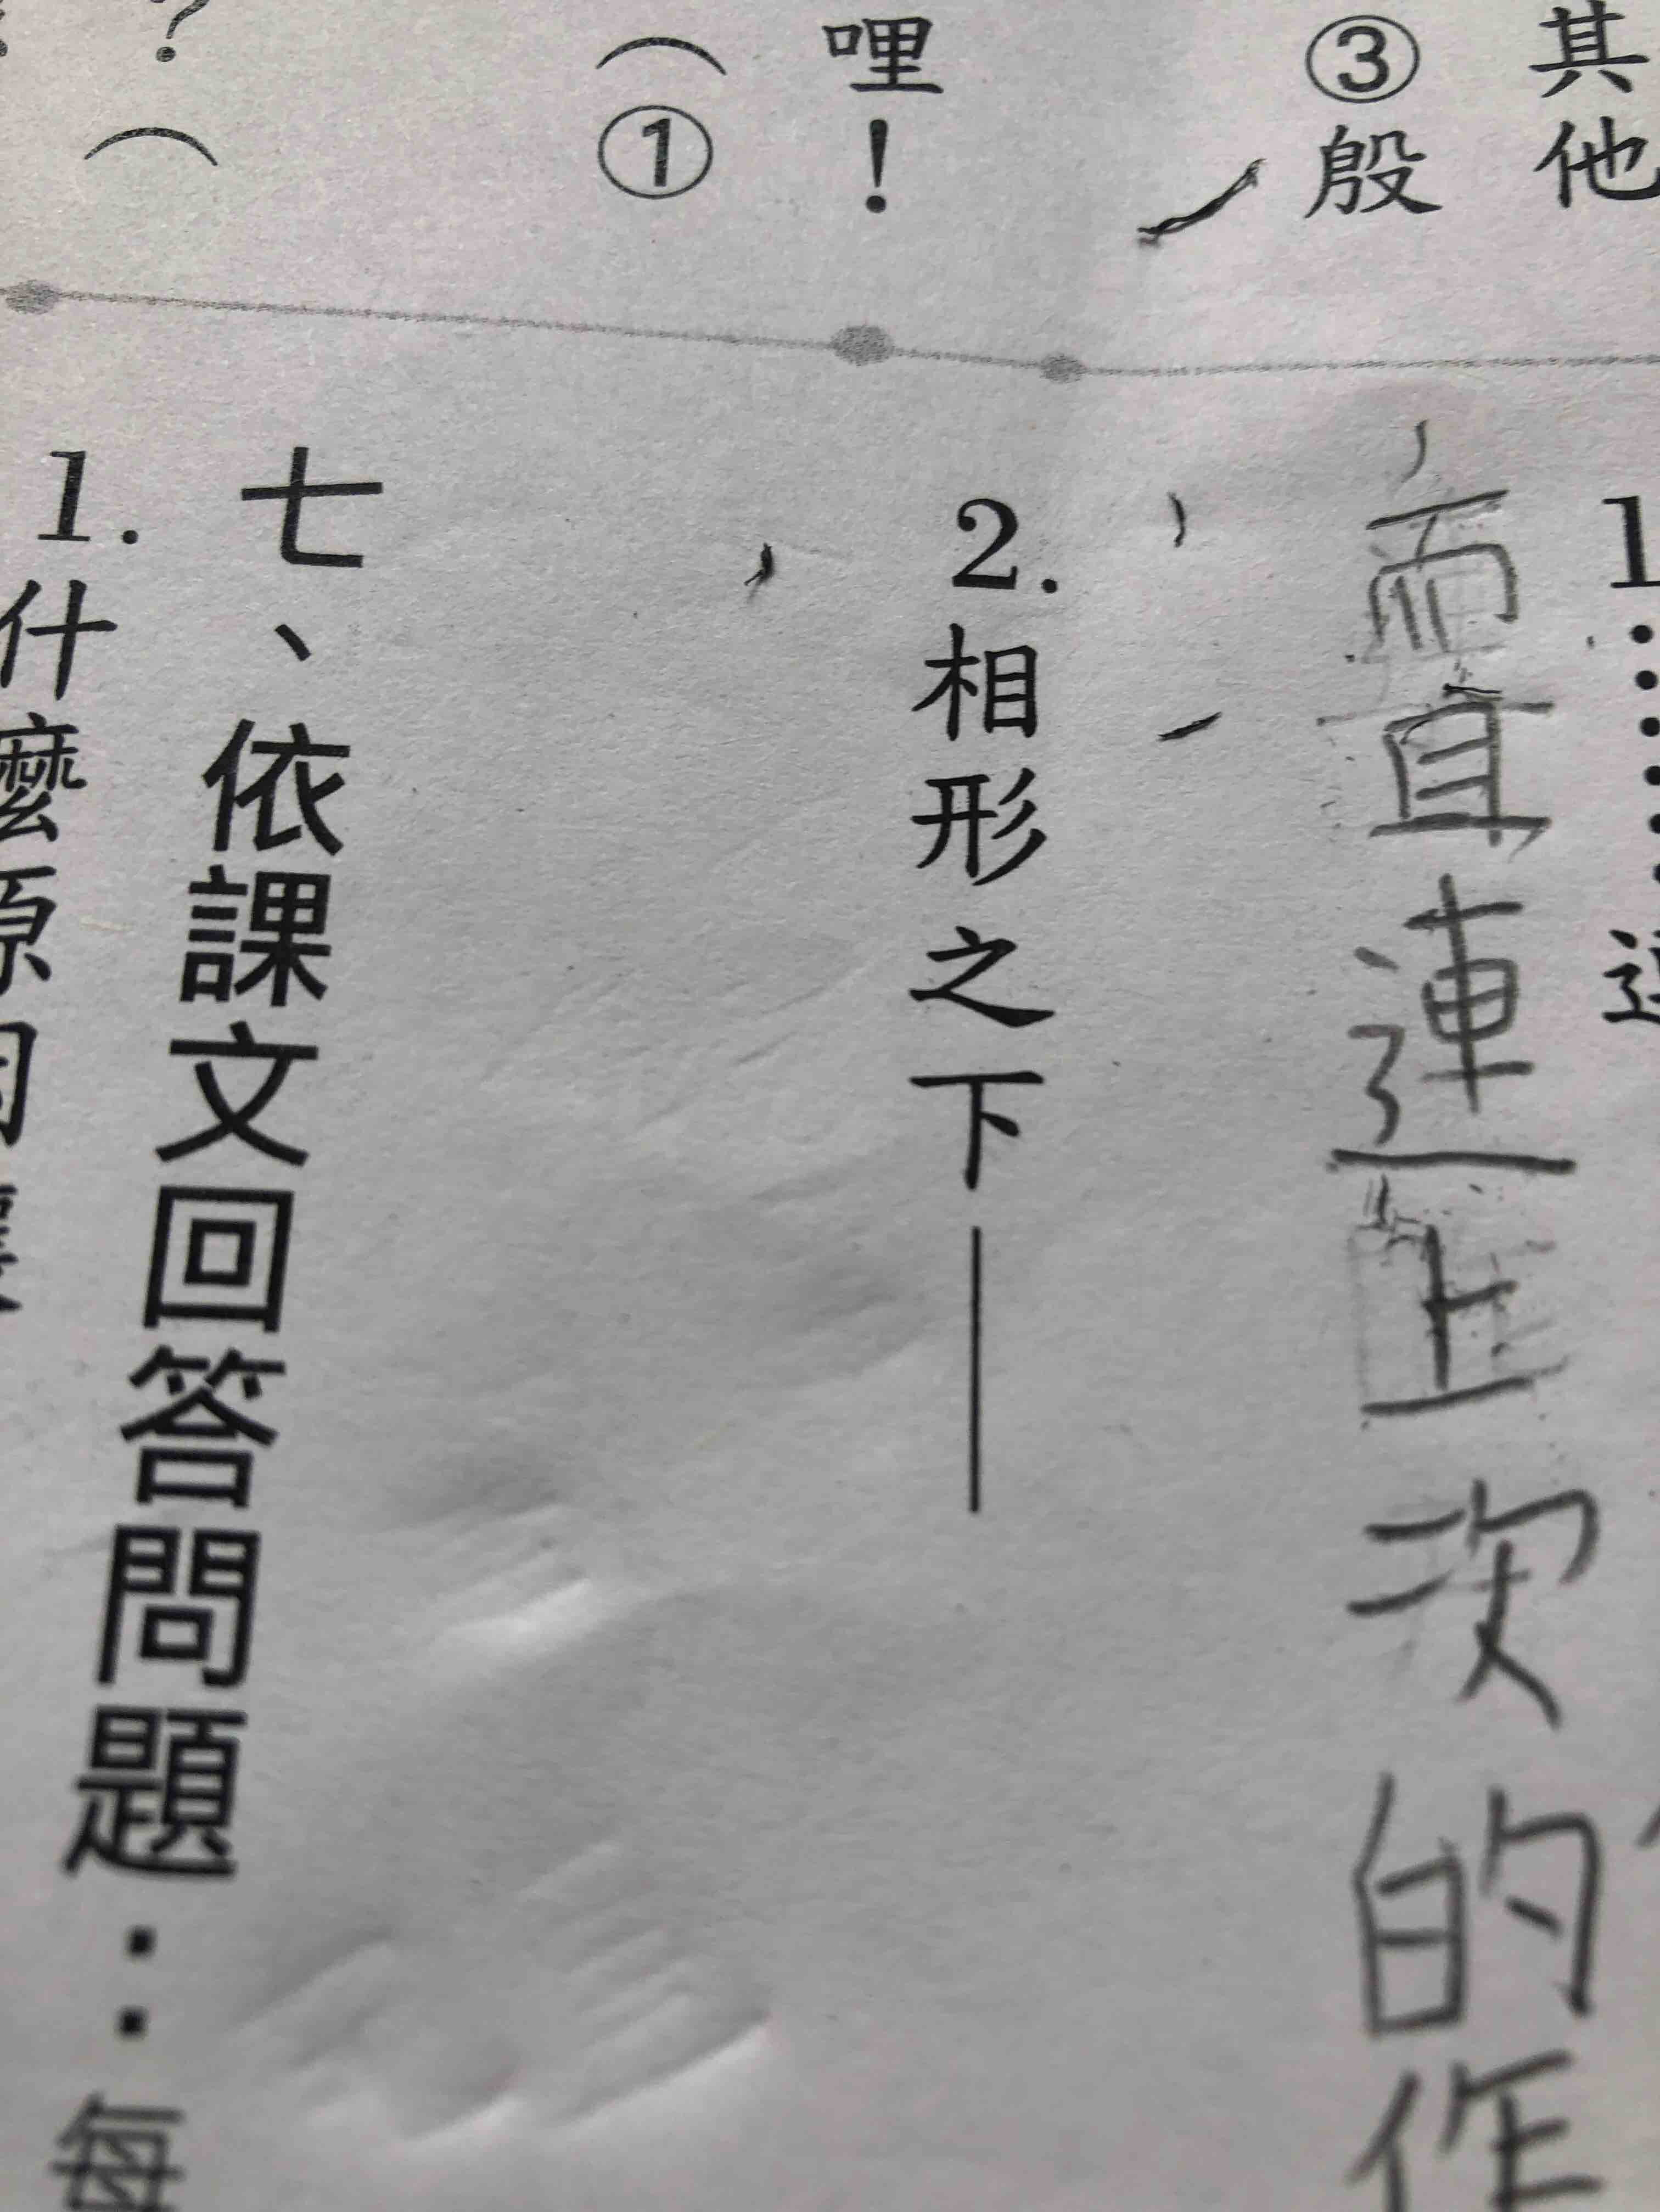 其他
③殷
哩!
(①
?(
1……
而且連上次的作
2.相形之下——
七、依課文回答問題:每
1.什麼原因讓